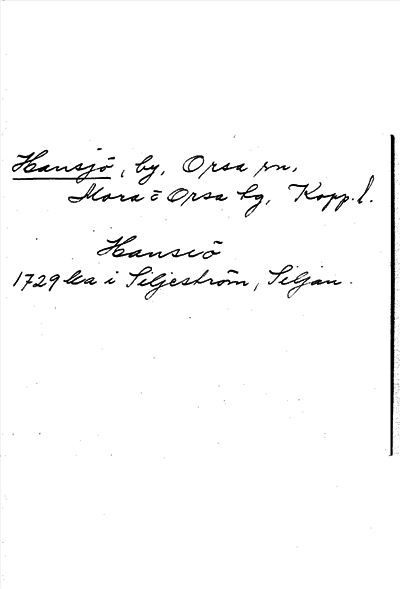 Hansjö, by, Orsa sn,
Mora = Orsa tg, Kopp. l.
Hansiö
1729 ka i Siljeström, Siljan.